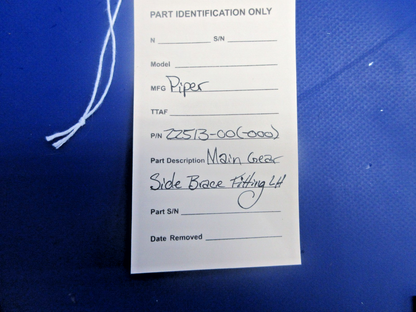 PART IDENTIFICATION ONLY
N S/N
Model
MFG Piper
TTAF
P/N 22513-00(-000)
Part Description Main Gear
Side Brace Fitting LH
Part S/N
Date Removed